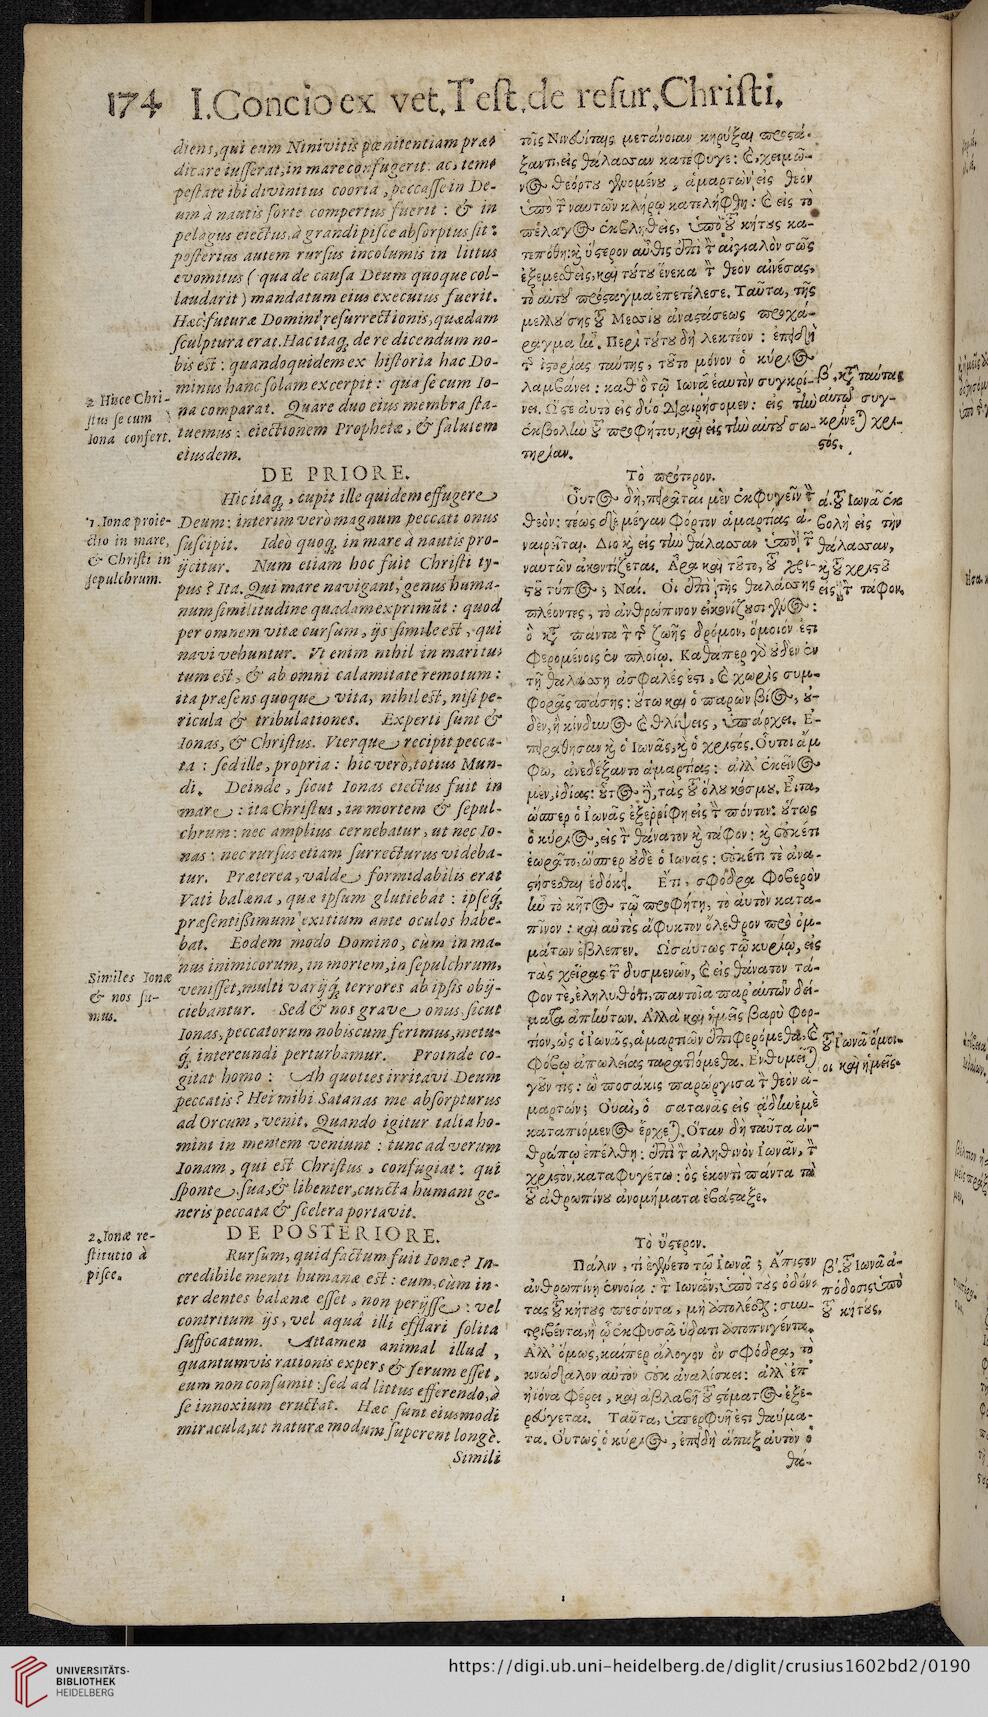 174 I. Concio ex vet. Test. de resur. Christi.
diens, qui eum Ninivitis pœnitentiam præ-
dicare iusserat, in mare confugerit: ac, tem-
pestate ibi divinitus coorta, peccasse in De-
um à nautis sorte compertus fuerit: & in
pelagus eiectus, à grandi pisce absorptus sit:
posterius autem rursus incolumis in littus
evomitus (qua de causa Deum quoque col-
laudarit) mandatum eius executus fuerit.
Hæc, futuræ Domini resurrectionis, quædam
sculptura erat. Hac itaq; de re dicendum no-
bis est: quandoquidem ex historia hac Do-
minus hanc solam excerpit: qua se cum Io-
na comparat. Quare duo eius membra sta-
tuemus: eiectionem Prophetæ, & salutem
eiusdem.
2 Hisce Chri-
stus se cum
Iona confert.
DE PRIORE.
Hic itaq;, cupit ille quidem effugere
Deum: interim verò magnum peccati onus
suscipit. Ideò quoq; in mare à nautis pro-
ijcitur. Num etiam hoc fuit Christi ty-
pus? Ita. Qui mare navigant, genus huma-
num similitudine quadam exprimūt: quod
per omnem vitæ cursum, ijs simile est, qui
navi vehuntur. Vt enim nihil in mari tu-
tum est, & ab omni calamitate remotum:
ita præsens quoque vita, nihil est, nisi pe-
ricula & tribulationes. Experti sunt &
Ionas, & Christus. Vterque recipit pecca-
ta: sed ille, propria: hic verò, totius Mun-
di. Deinde, sicut Ionas eiectus fuit in
mare: ita Christus, in mortem & sepul-
chrum: nec amplius cernebatur, ut nec Io-
nas: nec rursus etiam surrecturus videba-
tur. Præterea, valde formidabilis erat
Vati balæna, quæ ipsum glutiebat: ipseq;
præsentißimum exitium ante oculos habe-
bat. Eodem modo Domino, cùm in ma-
nus inimicorum, in mortem, in sepulchrum,
venisset, multi varijq; terrores ab ipsis obij-
ciebantur. Sed & nos grave onus, sicut
Ionas, peccatorum nobiscum ferimus, metu-
q; intereundi perturbamur. Proinde co-
gitat homo: Ah quoties irritavi Deum
peccatis? Hei mihi Satanas me absorpturus
ad Orcum, venit. Quando igitur talia ho-
mini in mentem veniunt: tunc ad verum
Ionam, qui est Christus, confugiat: qui
sponte sua, & libenter, cuncta humani ge-
neris peccata & scelera portavit.
1. Ionæ proie-
ctio in mare,
& Christi in
sepulchrum.
Similes Ionæ
& nos su-
mus.
DE POSTERIORE.
Rursum, quid factum fuit Ionæ? In-
credibile menti humanæ est: eum, cùm in-
ter dentes balænæ esset, non perijsse: vel
contritum ijs, vel aquâ illi efflari solita
suffocatum. Attamen animal illud,
quantumvis rationis expers & ferum esset,
eum non consumit: sed ad littus efferendo, à
se innoxium eructat. Hæc sunt eiusmodi
miracula, ut naturæ modum superent longè.
Simili
2. Ionæ re-
stitutio à
pisce.
τοῖς Νινευίταις μετάνοιαν κηρύξαι προστά-
ξαντι, εἰς θάλασσαν κατέφυγε: καὶ, χειμῶ-
νος θεόρτου γενομένου, ἁμαρτὼν εἰς θεὸν
ὑπὸ τῶν ναυτῶν κλήρῳ κατελήφθη: καὶ εἰς τὸ
πέλαγος ἐκβληθεὶς, ὑπὸ τοῦ κήτους κα-
τεπόθη: καὶ ὕστερον αὖθις ἐπὶ τὸν αἰγιαλὸν σῶς
ἐξεμεθεὶς, καὶ τούτου ἕνεκα τὸν θεὸν αἰνέσας,
τὸ αὐτοῦ πρόσταγμα ἐπετέλεσε. Ταῦτα, τῆς
μελλούσης τοῦ Μεσσίου ἀναστάσεως προχά-
ραγμα ἦν. Περὶ τούτου δὴ λεκτέον: ἐπειδὴ
τῆς ἱστορίας ταύτης, τοῦτο μόνον ὁ κύριος
λαμβάνει: καθ' ὃ τῷ Ἰωνᾷ ἑαυτὸν συγκρί-
νει. Ὥστε αὐτὸ εἰς δύο διαιρήσομεν: εἰς τὴν
ἐκβολὴν τοῦ προφήτου, καὶ εἰς τὴν αὐτοῦ σω-
τηρίαν.
β', κατὰ ταῦτα
αὐτῷ συγ-
κρίνεται χρι-
στός.
Τὸ πρότερον.
Οὗτος δὴ, πειρᾶται μὲν ἐκφυγεῖν τὸν
θεὸν: τέως δὲ μέγαν φόρτον ἁμαρτίας ἀ-
ναιρεῖται. Διὸ καὶ εἰς τὴν θάλασσαν ὑπὸ τῶν
ναυτῶν ἀκοντίζεται. Ἆρα καὶ τοῦτο, τοῦ χρι-
στοῦ τύπος; Ναί. Οἱ ἐπὶ τῆς θαλάσσης
πλέοντες, τὸ ἀνθρώπινον εἰκονίζουσι γένος:
ὃ κατὰ πάντα τὸν τῆς ζωῆς δρόμον, ὅμοιόν ἐστι
φερομένοις ἐν πλοίῳ. Καθάπερ γὰρ οὐδὲν ἐν
τῇ θαλάσσῃ ἀσφαλές ἐστι, καὶ χωρὶς συμ-
φορᾶς πάσης: οὕτω καὶ ὁ παρὼν βίος, οὐ-
δὲν, ἢ κίνδυνος καὶ θλίψεις, ὑπάρχει. Ἐ-
πειράθησαν καὶ ὁ Ἰωνᾶς, καὶ ὁ χριστός. Οὗτοι ἄμ-
φω, ἀνεδέξαντο ἁμαρτίας: ἀλλ' ἐκεῖνος
μὲν, ἰδίας: οὗτος δὲ, τὰς τοῦ ὅλου κόσμου. Εἶτα,
ὥσπερ ὁ Ἰωνᾶς ἐξερρίφη εἰς τὸν πόντον: οὕτως
ὁ κύριος, εἰς τὸν θάνατον καὶ τάφον: καὶ οὐκέτι
ἑωρᾶτο, ὥσπερ οὐδὲ ὁ Ἰωνᾶς: οὐκέτι τὲ ἀνα-
στήσεσθαι ἐδόκει. Ἔτι, σφόδρα φοβερὸν
ἦν τὸ κῆτος τῷ προφήτῃ, τὸ αὐτὸν κατα-
πῖνον: καὶ αὐτὸς ἄφυκτον ὄλεθρον πρὸ ὀμ-
μάτων ἔβλεπεν. Ὡσαύτως τῷ κυρίῳ, εἰς
τὰς χεῖρας τῶν δυσμενῶν, καὶ εἰς θάνατον τά-
φον τε, ἐληλυθότι, παντοῖα παρ' αὐτῶν δεί-
ματα ἀπήντων. Ἀλλὰ καὶ ἡμεῖς βαρὺ φορ-
τίον, ὡς ὁ Ἰωνᾶς, ἁμαρτιῶν ἐπιφερόμεθα: καὶ
φόβῳ ἀπωλείας ταραττόμεθα. Ἐνθυμεῖται
γοῦν τις: ὢ ποσάκις παρώργισα τὸν θεὸν ἁ-
μαρτών; Οὐαὶ, ὁ σατανᾶς εἰς ᾅδην ἐμὲ
καταπιόμενος ἔρχεται. Ὅταν δὴ ταῦτα ἀν-
θρώπῳ ἐπέλθῃ: ἐπὶ τὸν ἀληθινὸν Ἰωνᾶν, τὸν
χριστὸν, καταφυγέτω: ὃς ἑκοντὶ πάντα τὰ
τοῦ ἀνθρωπίνου ἀνομήματα ἐβάσταξε.
ά. τοῦ Ἰωνᾶ ἐκ
βολὴ εἰς τὴν
θάλασσαν,
καὶ τοῦ χριστοῦ
εἰς τὸν τάφον.
τοῦ Ἰωνᾶ ὅμοι-
οι καὶ ἡμεῖς.
Τὸ ὕστερον.
Πάλιν, τί ἐγένετο τῷ Ἰωνᾷ; Ἄπιστον
ἀνθρωπίνῃ ἐννοίᾳ: τὸν Ἰωνᾶν, ὑπὸ τοὺς ὀδόν-
τας τοῦ κήτους πεσόντα, μὴ ἀπολέσθαι: συν-
τριβέντα, ἢ ᾧ ἐκφυσᾷ ὕδατι ἀποπνιγέντα.
Ἀλλ' ὅμως, καίπερ ἄλογον ὂν σφόδρα, τὸ
κνώδαλον αὐτὸν οὐκ ἀναλίσκει: ἀλλ' ἐπ'
ἠϊόνα φέρει, καὶ ἀβλαβῆ τοῦ στόματος ἐξε-
ρεύγεται. Ταῦτα, ὑπερφυῆ ἐστι θαύμα-
τα. Οὕτως ὁ κύριος, ἐπειδὴ ἅπαξ αὐτὸν ὁ
θά-
β'. τοῦ Ἰωνᾶ ἀ-
πόδοσις ὑπὸ
τοῦ κήτους.
UNIVERSITÄTS-
BIBLIOTHEK
HEIDELBERG
https://digi.ub.uni-heidelberg.de/diglit/crusius1602bd2/0190